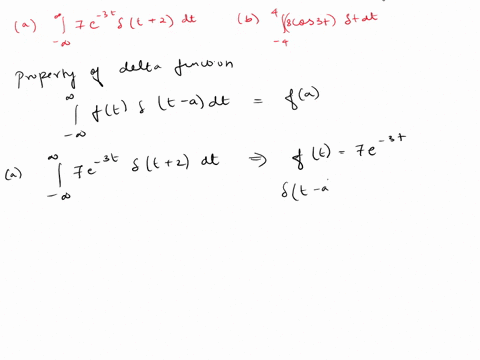 (a) ∫_{-∞}^{∞} 7e^{-3t} δ(t+2) dt (b) ∫_{-4}^{4} (8cos3t) δt dt
Property of delta function
∫_{-∞}^{∞} f(t) δ(t-a) dt = f(a)
(a) ∫_{-∞}^{∞} 7e^{-3t} δ(t+2) dt ⇒ f(t) = 7e^{-3t}
δ(t-a